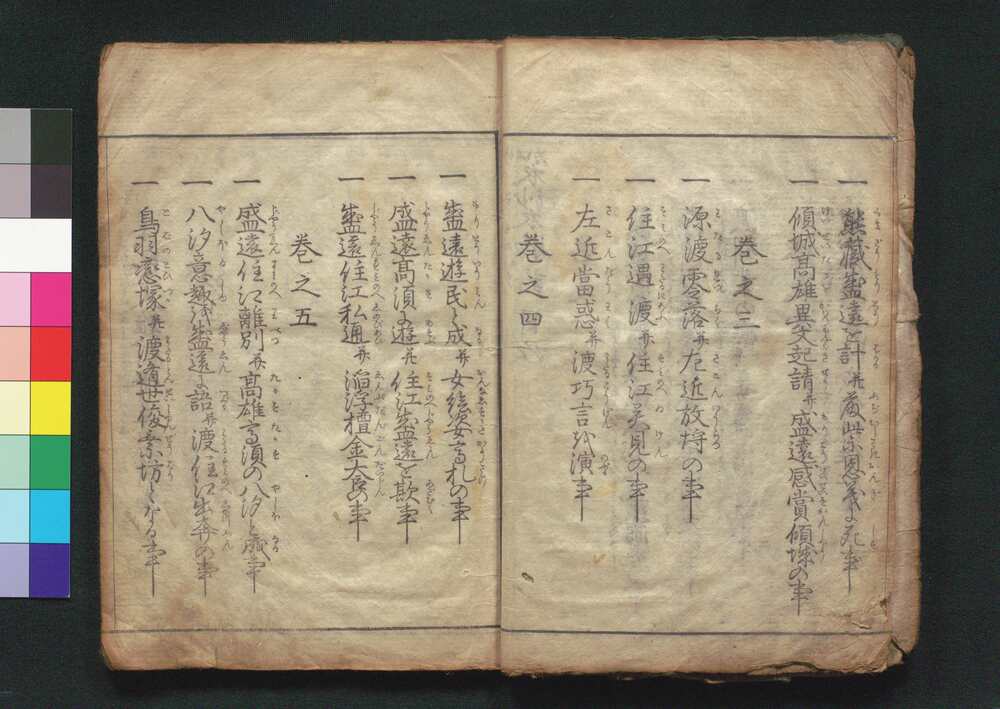 一 熊蔵盛遠を計 并
一 傾城髙雄異文起請 并 盛遠感賞傾城の事
巻之三
一 源渡零落 并 左近放埒の事
一 住江遇渡 并 住江異見の事
巻之四
一 左近當惑 并 渡巧言を演事
一 盛遠遊民と成 并 女
一 盛遠髙須に遊 并 住江盛遠を欺事
一 盛遠住江私通 并 金大臣の事
巻之五
一 盛遠住江離別 并 髙雄髙須の八汐と成事
一 八汐意趣を盛遠に語 并 渡住江出奔の事
一 鳥羽戀塚 并 渡遁世俊乗坊となる事